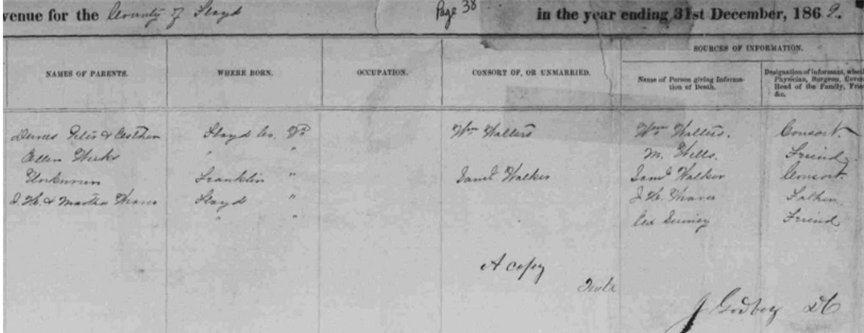 venue for the County of Floyd Page 38 in the year ending 31st December, 1869.
SOURCES OF INFORMATION.
NAMES OF PARENTS. WHERE BORN. OCCUPATION. CONSORT OF, OR UNMARRIED.
Name of Person giving Information of Death.
Designation of informant, whether Physician, Surgeon, Head of the Family, &c.
Floyd Co. Va Wm Walters Wm Walters. Consort
Ellen Weeks " " M. Wells. Friend
Unknown Franklin " Saml Walker Saml Walker Consort
J. H. & Martha Floyd " J. H. Father
" " Friend
A copy
Teste
J Godbey DC